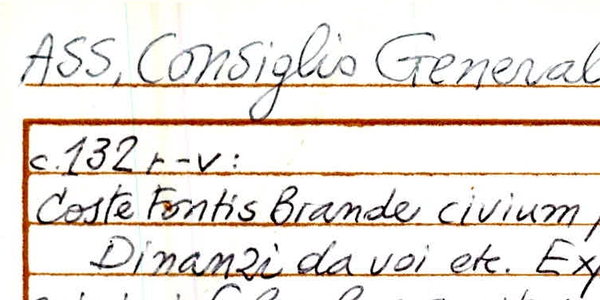 ASS, Consiglio General
c. 132 r-v:
Coste Fontis Brande civium
Dinanzi da voi etc. Ex